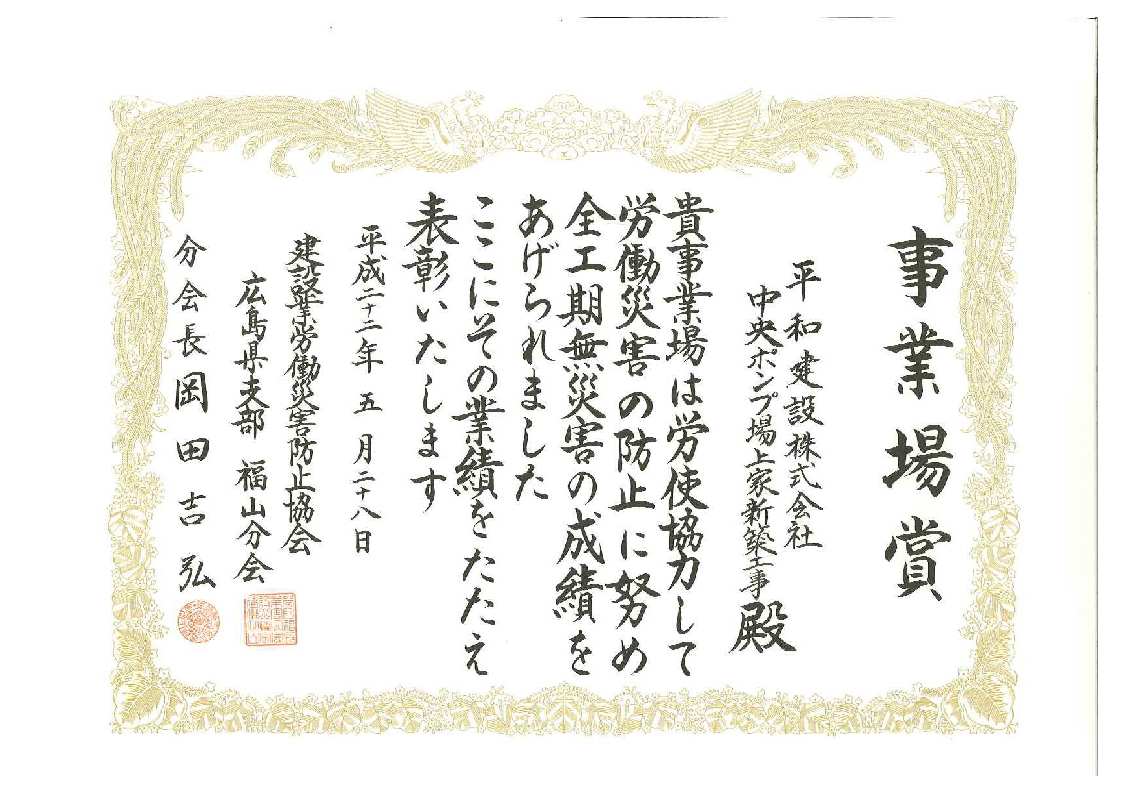 事業場賞
平和建設株式会社
中央ポンプ場上家新築工事 殿
貴事業場は労使協力して
労働災害の防止に努め
全工期無災害の成績を
あげられました
ここにその業績をたたえ
表彰いたします
平成二十二年 五 月二十八日
建設業労働災害防止協会
広島県支部 福山分会
分会長 岡田吉弘